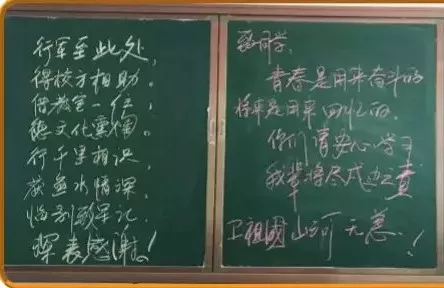 行军至此处，
得校方相助。
借教室一位，
感文化熏陶。
行千里相识，
鱼水情深，
临别
深表感谢！
致同学：
青春是用来奋斗的
将来是用来回忆的。
你们请安心学习
我辈将尽戍边之责
卫祖國山河无恙！